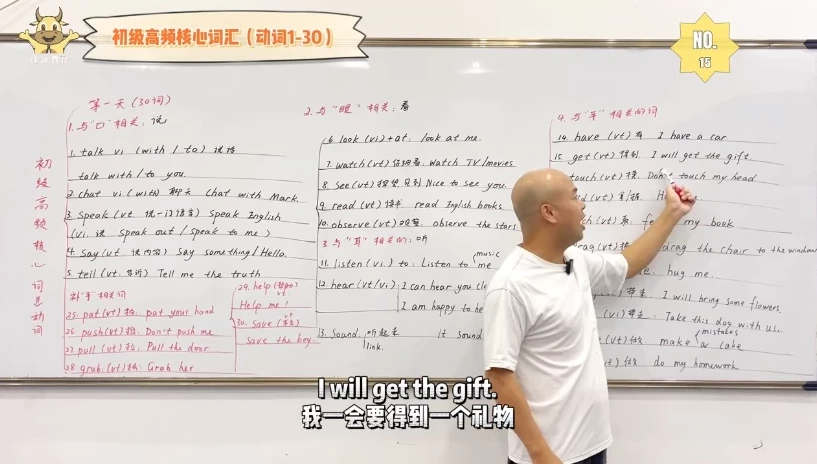 初级高频核心词汇（动词1-30）
NO.
15
初级高频核心词总动词
第一天（30词）
1.与"口"相关：说
1. talk vi (with / to) 谈话
talk with / to you.
2. chat vi (with) 聊天 chat with Mark.
3. Speak (vt 说一门语言) Speak English
(vi. 说 Speak out / Speak to me)
4. Say (vt 说内容) Say something / Hello.
5. tell (vt. 告诉) Tell me the truth
补"手"相关词
25. pat (vt) 拍: pat your hand
26. push (vt) 推: Don't push me
27. pull (vt) 拉: Pull the door
28. grab (vt) 抓: Grab her
29. help (帮助) vt
Help me!
30. Save (救) vt
Save the boy.
2. 与"眼"相关：看
6. look (vi) + at: look at me.
7. watch (vt) 仔细看: Watch TV / movies
8. See (vt) 探望 见到 Nice to see you.
9. read (vt) 读书 read English books.
10. observe (vt) 观察 observe the stars
3. 与"耳"相关的: 听
11. listen (vi.) to: Listen to music
me
12. hear (vt/vi) I can hear you
I am happy to he
13. Sound 听起来 it sound
link.
4. 与"手"相关的词
14. have (vt) 有 I have a car
15. get (vt) 得到 I will get the gift.
touch (vt) 摸 Don't touch my head
my book
drag the chair to the window
hug me.
带来 I will bring some flowers
(vi) 带走 Take this dog with us.
(vt) 做 make a cake
mistakes
(vt) 做 do my homework
I will get the gift.
我一会要得到一个礼物